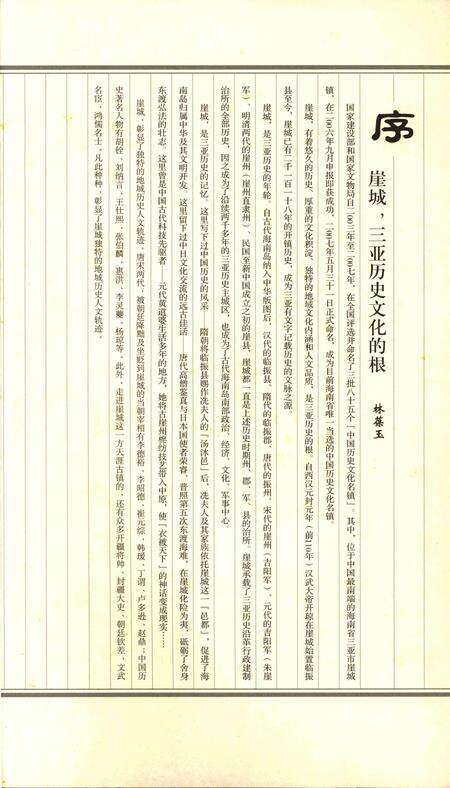 序
崖城，三亚历史文化的根
林葆玉
国家建设部和国家文物局自二〇〇三年至二〇〇七年，在全国评选并命名了三批八十五个「中国历史文化名镇」。其中，位于中国最南端的海南省三亚市崖城
镇，在二〇〇六年九月申报即获成功，二〇〇七年五月三十一日正式命名，成为目前海南省唯一当选的中国历史文化名镇。
崖城，有着悠久的历史、厚重的文化积淀、独特的地域文化内涵和人文品质，是三亚历史的根。自西汉元封元年（前110年）汉武大帝开琼在崖城始置临振
县至今，崖城已有二千一百一十八年的开镇历史，成为三亚有文字记载历史的文脉之源。
崖城，是三亚历史的年轮。自古代海南岛纳入中华版图后，汉代的临振县、隋代的临振郡、唐代的振州、宋代的崖州（吉阳军）、元代的吉阳军（朱崖
军），明清两代的崖州（崖州直隶州）、民国至新中国成立之初的崖县，崖城都一直是上述历史时期州、郡、军、县的治所。崖城承载了三亚历史沿革行政建制
治所的全部历史，因之成为了沿续两千多年的三亚历史主城区，也成为了古代海南岛南部政治、经济、文化、军事中心。
崖城，是三亚历史的记忆，这里写下过中国历史的风采——隋朝将临振县赐作冼夫人的「汤沐邑」后，冼夫人及其家族依托崖城这一「邑都」，促进了海
南岛归属中华及其文明开发。这里留下过中日文化交流的远古佳话——唐代高僧鉴真与日本国使者荣睿、普照第五次东渡海难，在崖城化险为夷，砥砺了舍身
东渡弘法的壮志。这里曾是中国古代科技先驱者——元代黄道婆生活多年的地方，她将古崖州棉纺技艺带入中原，使「衣被天下」的神话变成现实……
崖城，彰显了独特的地域历史人文轨迹。唐宋两代，被朝廷降黜及坐贬到崖城的当朝宰相有李德裕、李昭德、崔元综、韩瑗、丁谓、卢多逊、赵鼎；中国历
史著名人物有胡铨、刘纳言、王仕熙、张伯麟、惠洪、李灵夔、杨琼等。此外，走进崖城这一方天涯古镇的，还有众多开疆将帅、封疆大吏、朝廷钦差、文武
名臣、鸿儒名士。凡此种种，彰显了崖城独特的地域历史人文轨迹。